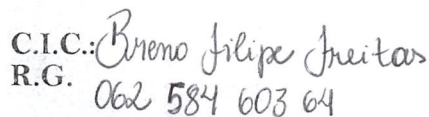 C.I.C.: Breno Filipe Freitas
R.G. 062 584 603 64